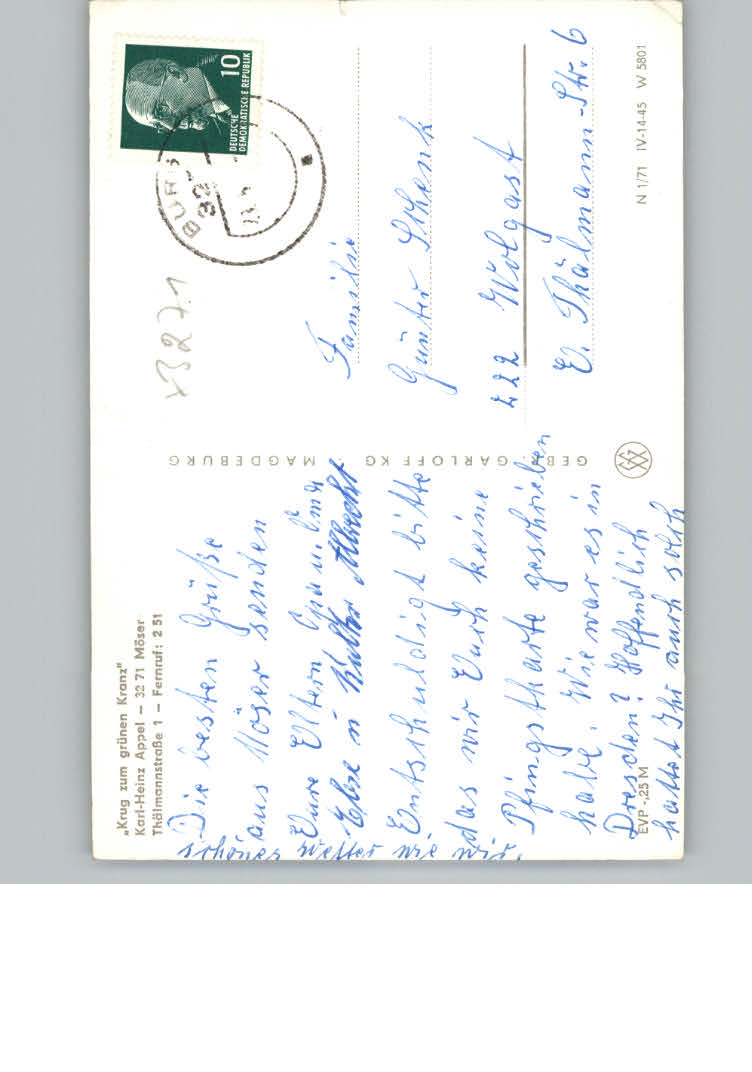 „Krug zum grünen Kranz"
Karl-Heinz Appel — 32 71 Möser
Thälmannstraße 1 — Fernruf: 2 51
Die besten Grüße
aus Möser senden
Eure Eltern Opa u. Oma
Else u. Walter Albrecht
Entschuldigt bitte
das wir Euch keine
Pfingstkarte geschrieben
habe. Wie war es in
Dresden? Hoffendlich
hattet Ihr auch solch
schönes Wetter wie wir.
EVP -,25 M
GEBR. GARLOFF KG · MAGDEBURG
10
DEUTSCHE
DEMOKRATISCHE REPUBLIK
BURG
327
v3271
Familie
Günter Schenk
222 Wolgast
E. Thälmann-Str. 6
N 1/71 IV-14-45 W 5801